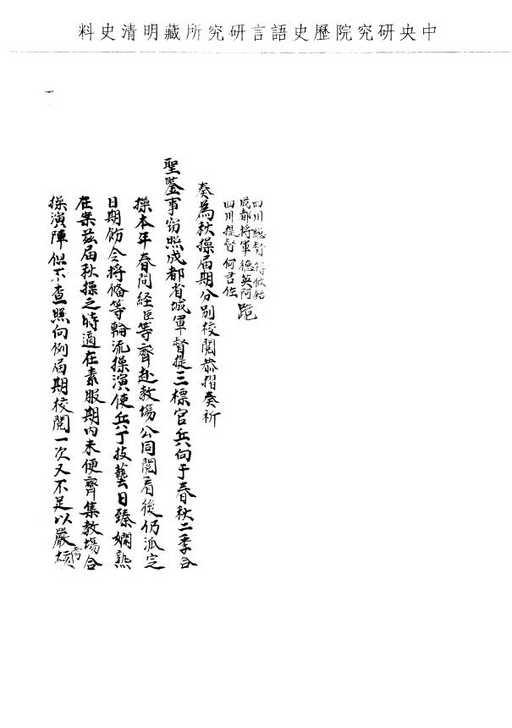 中央研究院歷史語言研究所藏明清史料
四川總督 蔣攸銛
成都將軍 德英阿 跪
四川提督 何君佐
奏為秋操屆期分別校閱恭摺奏祈
聖鑒事竊照成都省城軍督提三標官兵向于春秋二季合
操本年春間經臣等齊赴教場公同閱看後仍派定
日期飭令將俻等輪流操演使兵丁技藝日臻嫻熟
在案茲届秋操之時適在素服期內未便齊集教場合
操演陣但不查照向例届期校閱一次又不足以嚴